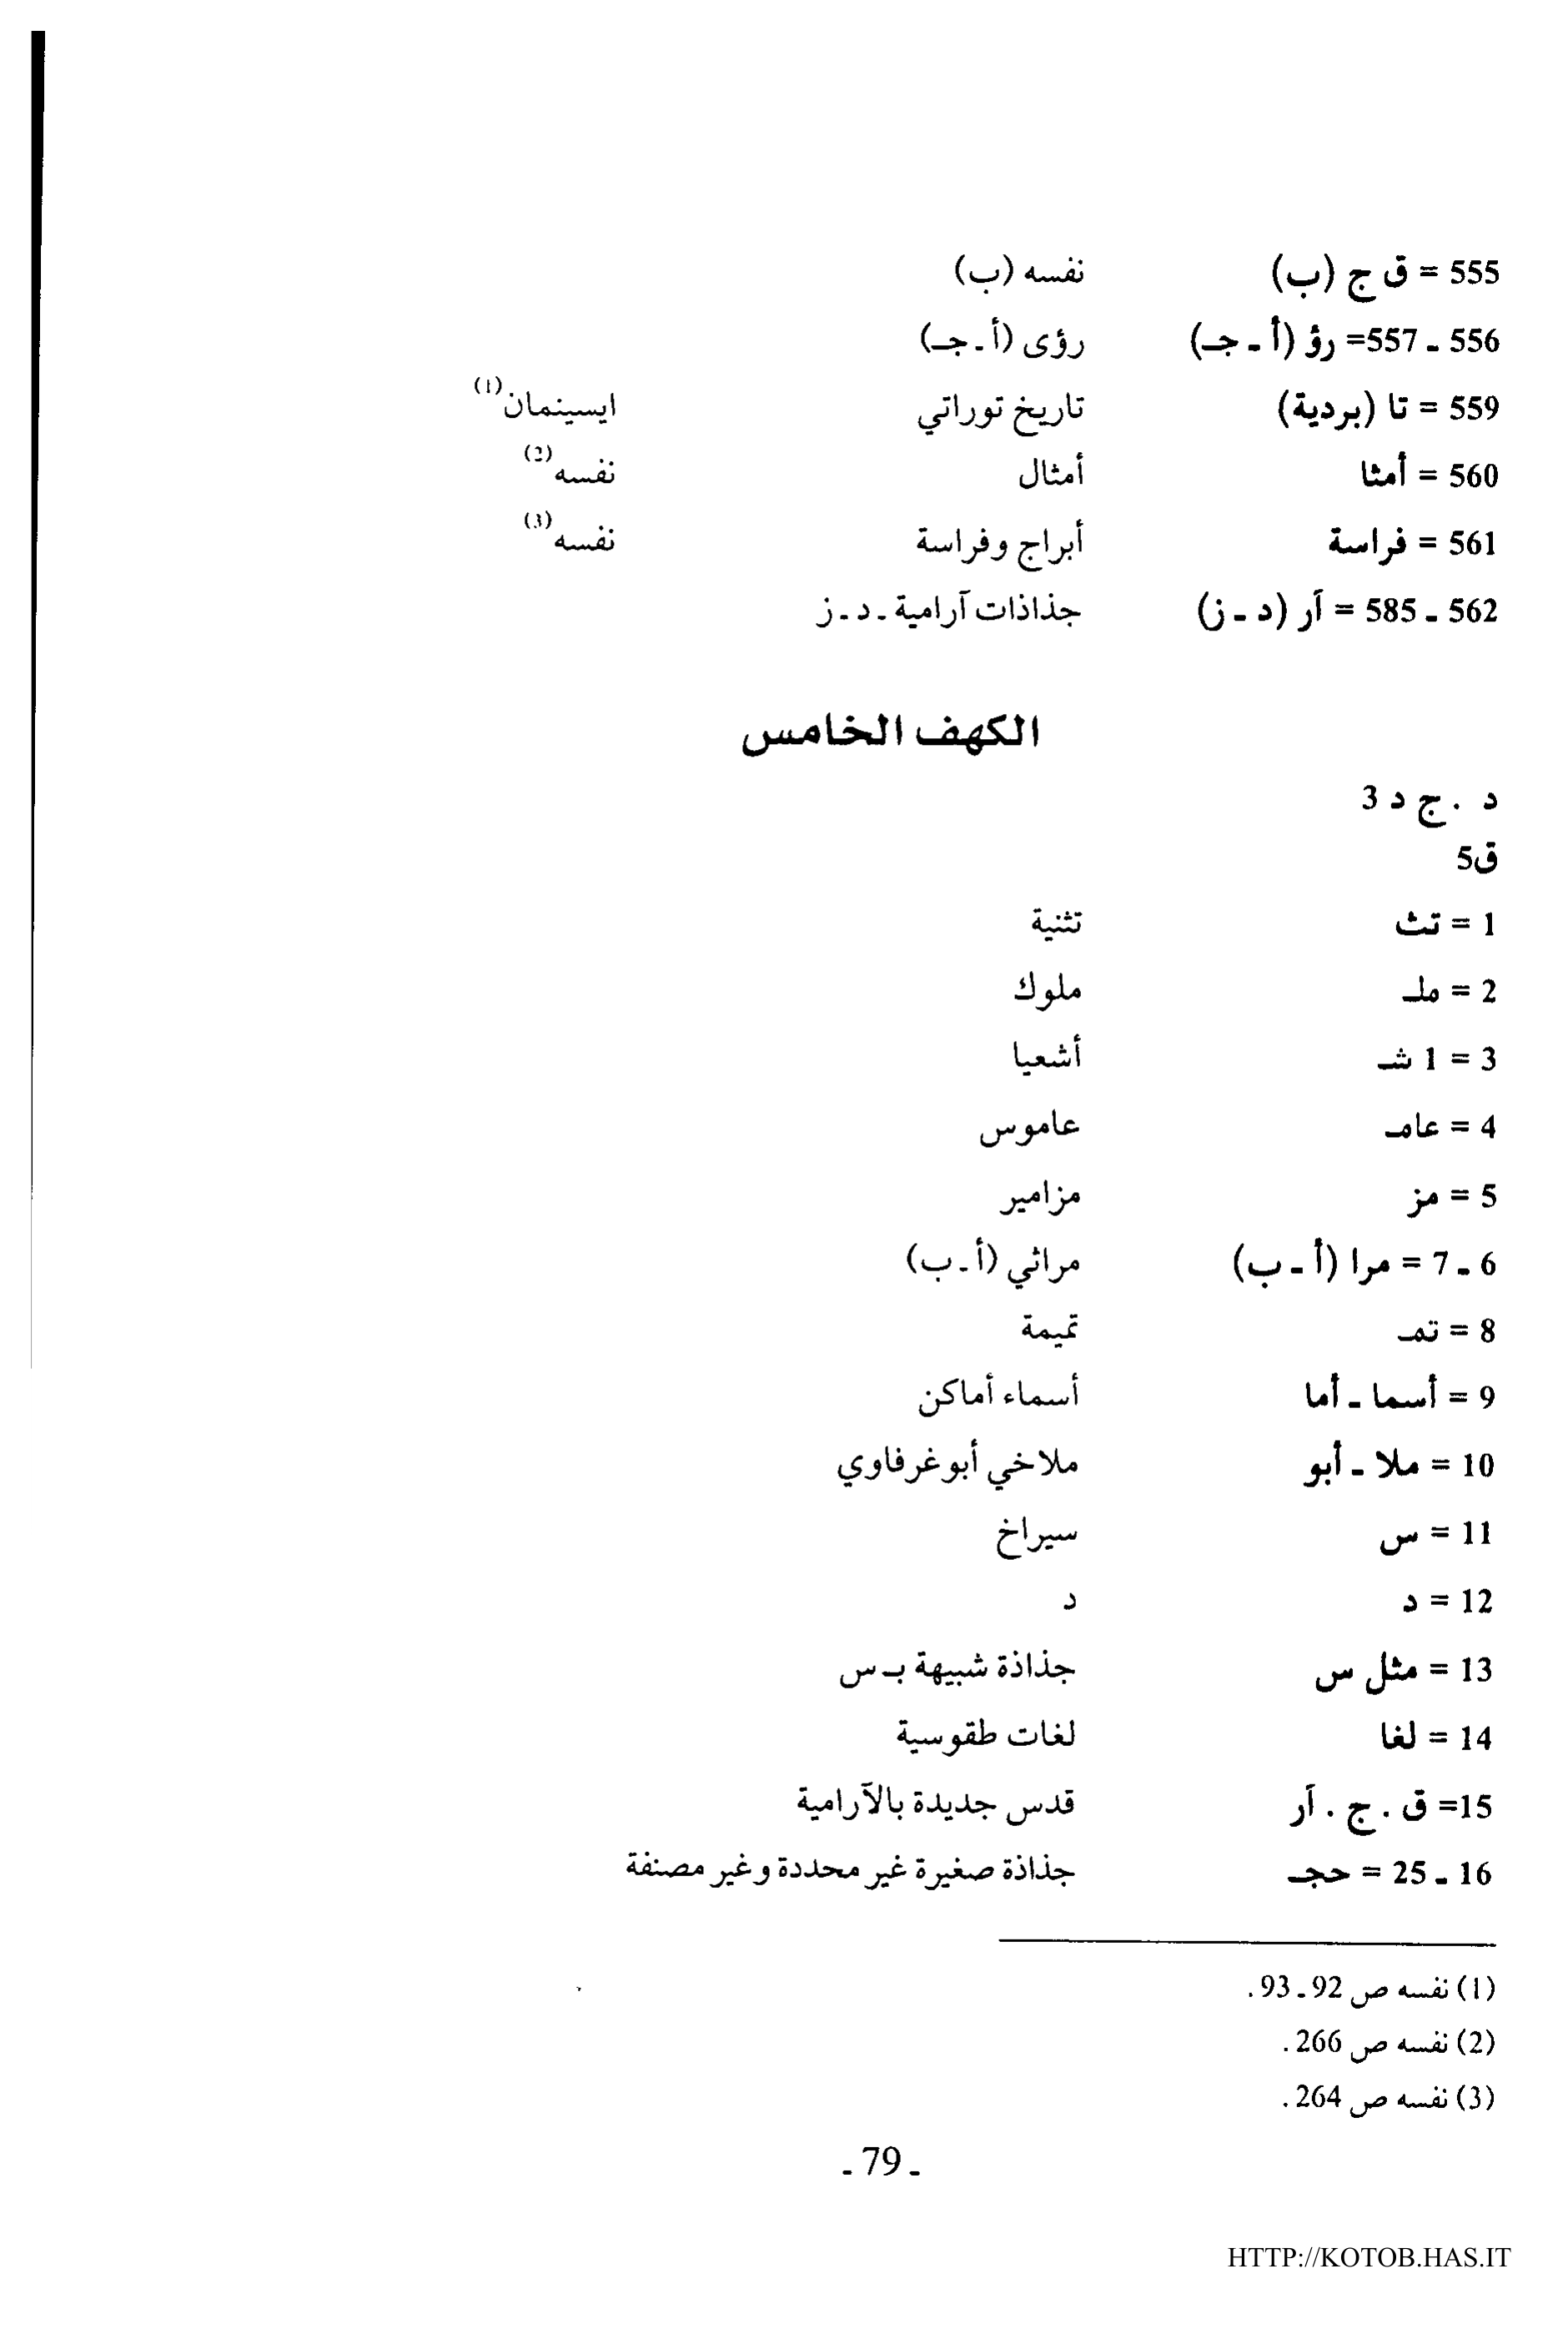 555 = ق ج (ب) نفسه (ب)
556 ـ 557= رؤ (أ ـ جـ) رؤى (أ ـ جـ)
559 = تا (بردية) تاريخ توراتي ايسينمان(1)
560 = أمثا أمثال نفسه(2)
561 = فراسة أبراج وفراسة نفسه(3)
562 ـ 585 = آر (د ـ ز) جذاذات آرامية ـ د ـ ز
الكهف الخامس
د . ج د 3
ق5
1 = تث تثنية
2 = ملـ ملوك
3 = 1 شـ أشعيا
4 = عامـ عاموس
5 = مز مزامير
6 ـ 7 = مرا (أ ـ ب) مراثي (أ ـ ب)
8 = تمـ تميمة
9 = أسما ـ أما أسماء أماكن
10 = ملا ـ أبو ملاخي أبوغرفاوي
11 = س سيراخ
12 = د د
13 = مثل س جذاذة شبيهة بـ س
14 = لغا لغات طقوسية
15= ق . ج . آر قدس جديدة بالآرامية
16 ـ 25 = حجـ جذاذة صغيرة غير محددة وغير مصنفة
(1) نفسه ص 92 ـ 93 .
(2) نفسه ص 266 .
(3) نفسه ص 264 .
ـ 79 ـ
HTTP://KOTOB.HAS.IT